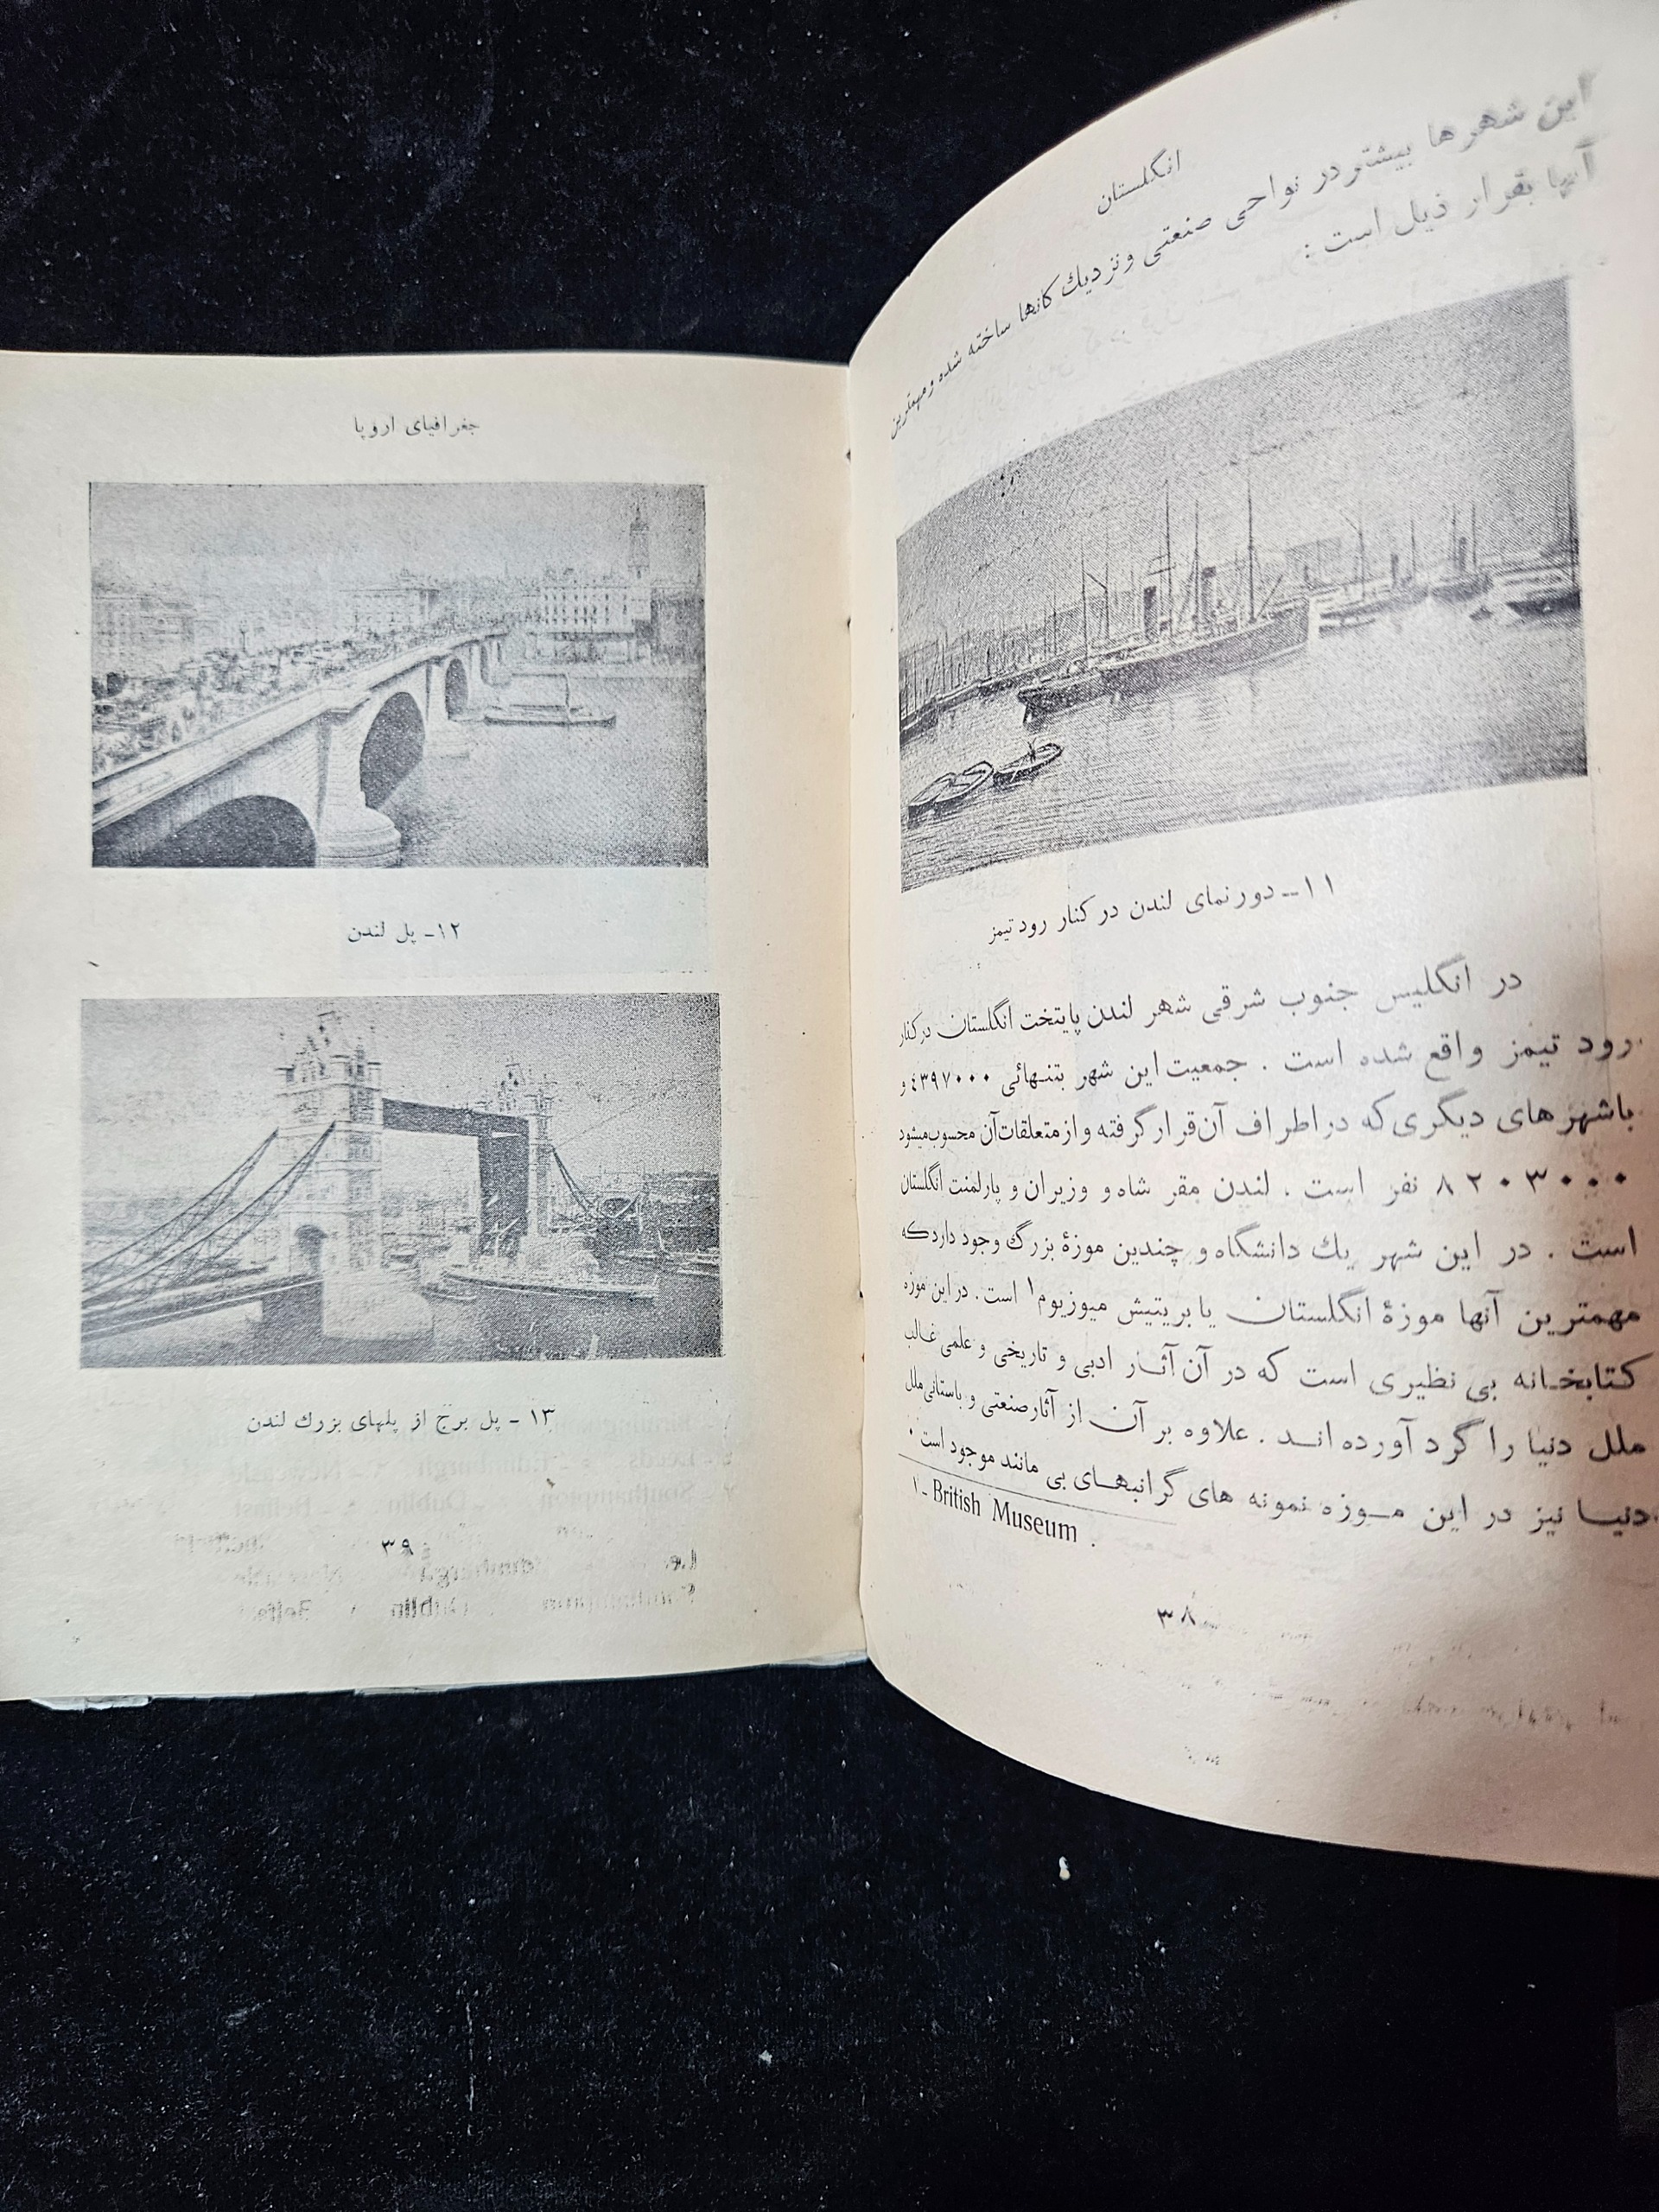 انگلستان
این شهرها بیشتر در نواحی صنعتی ونزدیك کانها ساخته شده ومهمترین
آنها بقرار ذیل است :
۱۱ــ دورنمای لندن در کنار رود تیمز
در انگلیس جنوب شرقی شهر لندن پایتخت انگلستان در کنار
رود تیمز واقع شده است . جمعیت این شهر بتنهائی ٤۳۹۷۰۰۰ و
باشهرهای دیگری که در اطراف آن قرار گرفته و از متعلقات آن محسوب میشود
۸۲۰۳۰۰۰ نفر است . لندن مقر شاه و وزیران و پارلمنت انگلستان
است . در این شهر یك دانشگاه و چندین موزهٔ بزرگ وجود دارد که
مهمترین آنها موزهٔ انگلستان یا بریتیش میوزیوم۱ است . در این موزه
کتابخانه بی نظیری است که در آن آثار ادبی و تاریخی و علمی غالب
ملل دنیا را گرد آورده اند . علاوه بر آن از آثار صنعتی و باستانی ملل
دنیا نیز در این موزه نمونه های گرانبهای بی مانند موجود است .
۱- British Museum .
۳۸
جغرافیای اروپا
۱۲- پل لندن
۱۳ - پل برج از پلهای بزرك لندن
۳۹